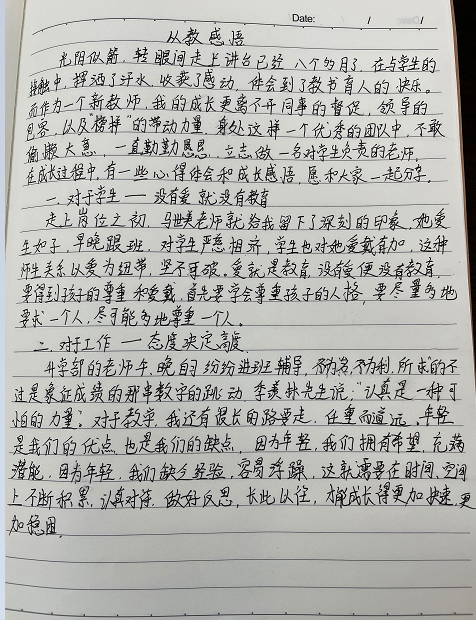 Date: / /
从教感悟
光阴似箭，转眼间走上讲台已经八个多月了，在与学生的
接触中，挥洒了汗水，收获了感动，体会到了教书育人的快乐。
而作为一个新教师，我的成长更离不开同事的督促，领导的
包容，以及“榜样”的带动力量，身处这样一个优秀的团队中，不敢
偷懒大意，一直勤勤恳恳，立志做一名对学生负责的老师，
在成长过程中，有一些心得体会和成长感悟，愿和大家一起分享。
一、对于学生——没有爱就没有教育
走上岗位之初，马世美老师就给我留下了深刻的印象，她爱
生如子，早晚跟班，对学生严慈相济，学生也对她爱戴有加，这种
师生关系以爱为纽带，坚不可破，爱就是教育，没有爱便没有教育，
要得到孩子的尊重和爱戴，首先要学会尊重孩子的人格，要尽量多地
要求一个人，尽可能多地尊重一个人。
二、对于工作——态度决定高度
升学部的老师午、晚自纷纷进班辅导，不为名，不为利，所求的不
过是象征成绩的那串数字的跳动，季羡林先生说：“认真是一种可
怕的力量”。对于教学，我还有很长的路要走，任重而道远，年轻
是我们的优点，也是我们的缺点，因为年轻，我们拥有希望，充满
潜能，因为年轻，我们缺乏经验，容易浮躁，这就需要在时间、空间
上不断积累，认真对待，做好反思，长此以往，才能成长得更加快速，更
加稳固。